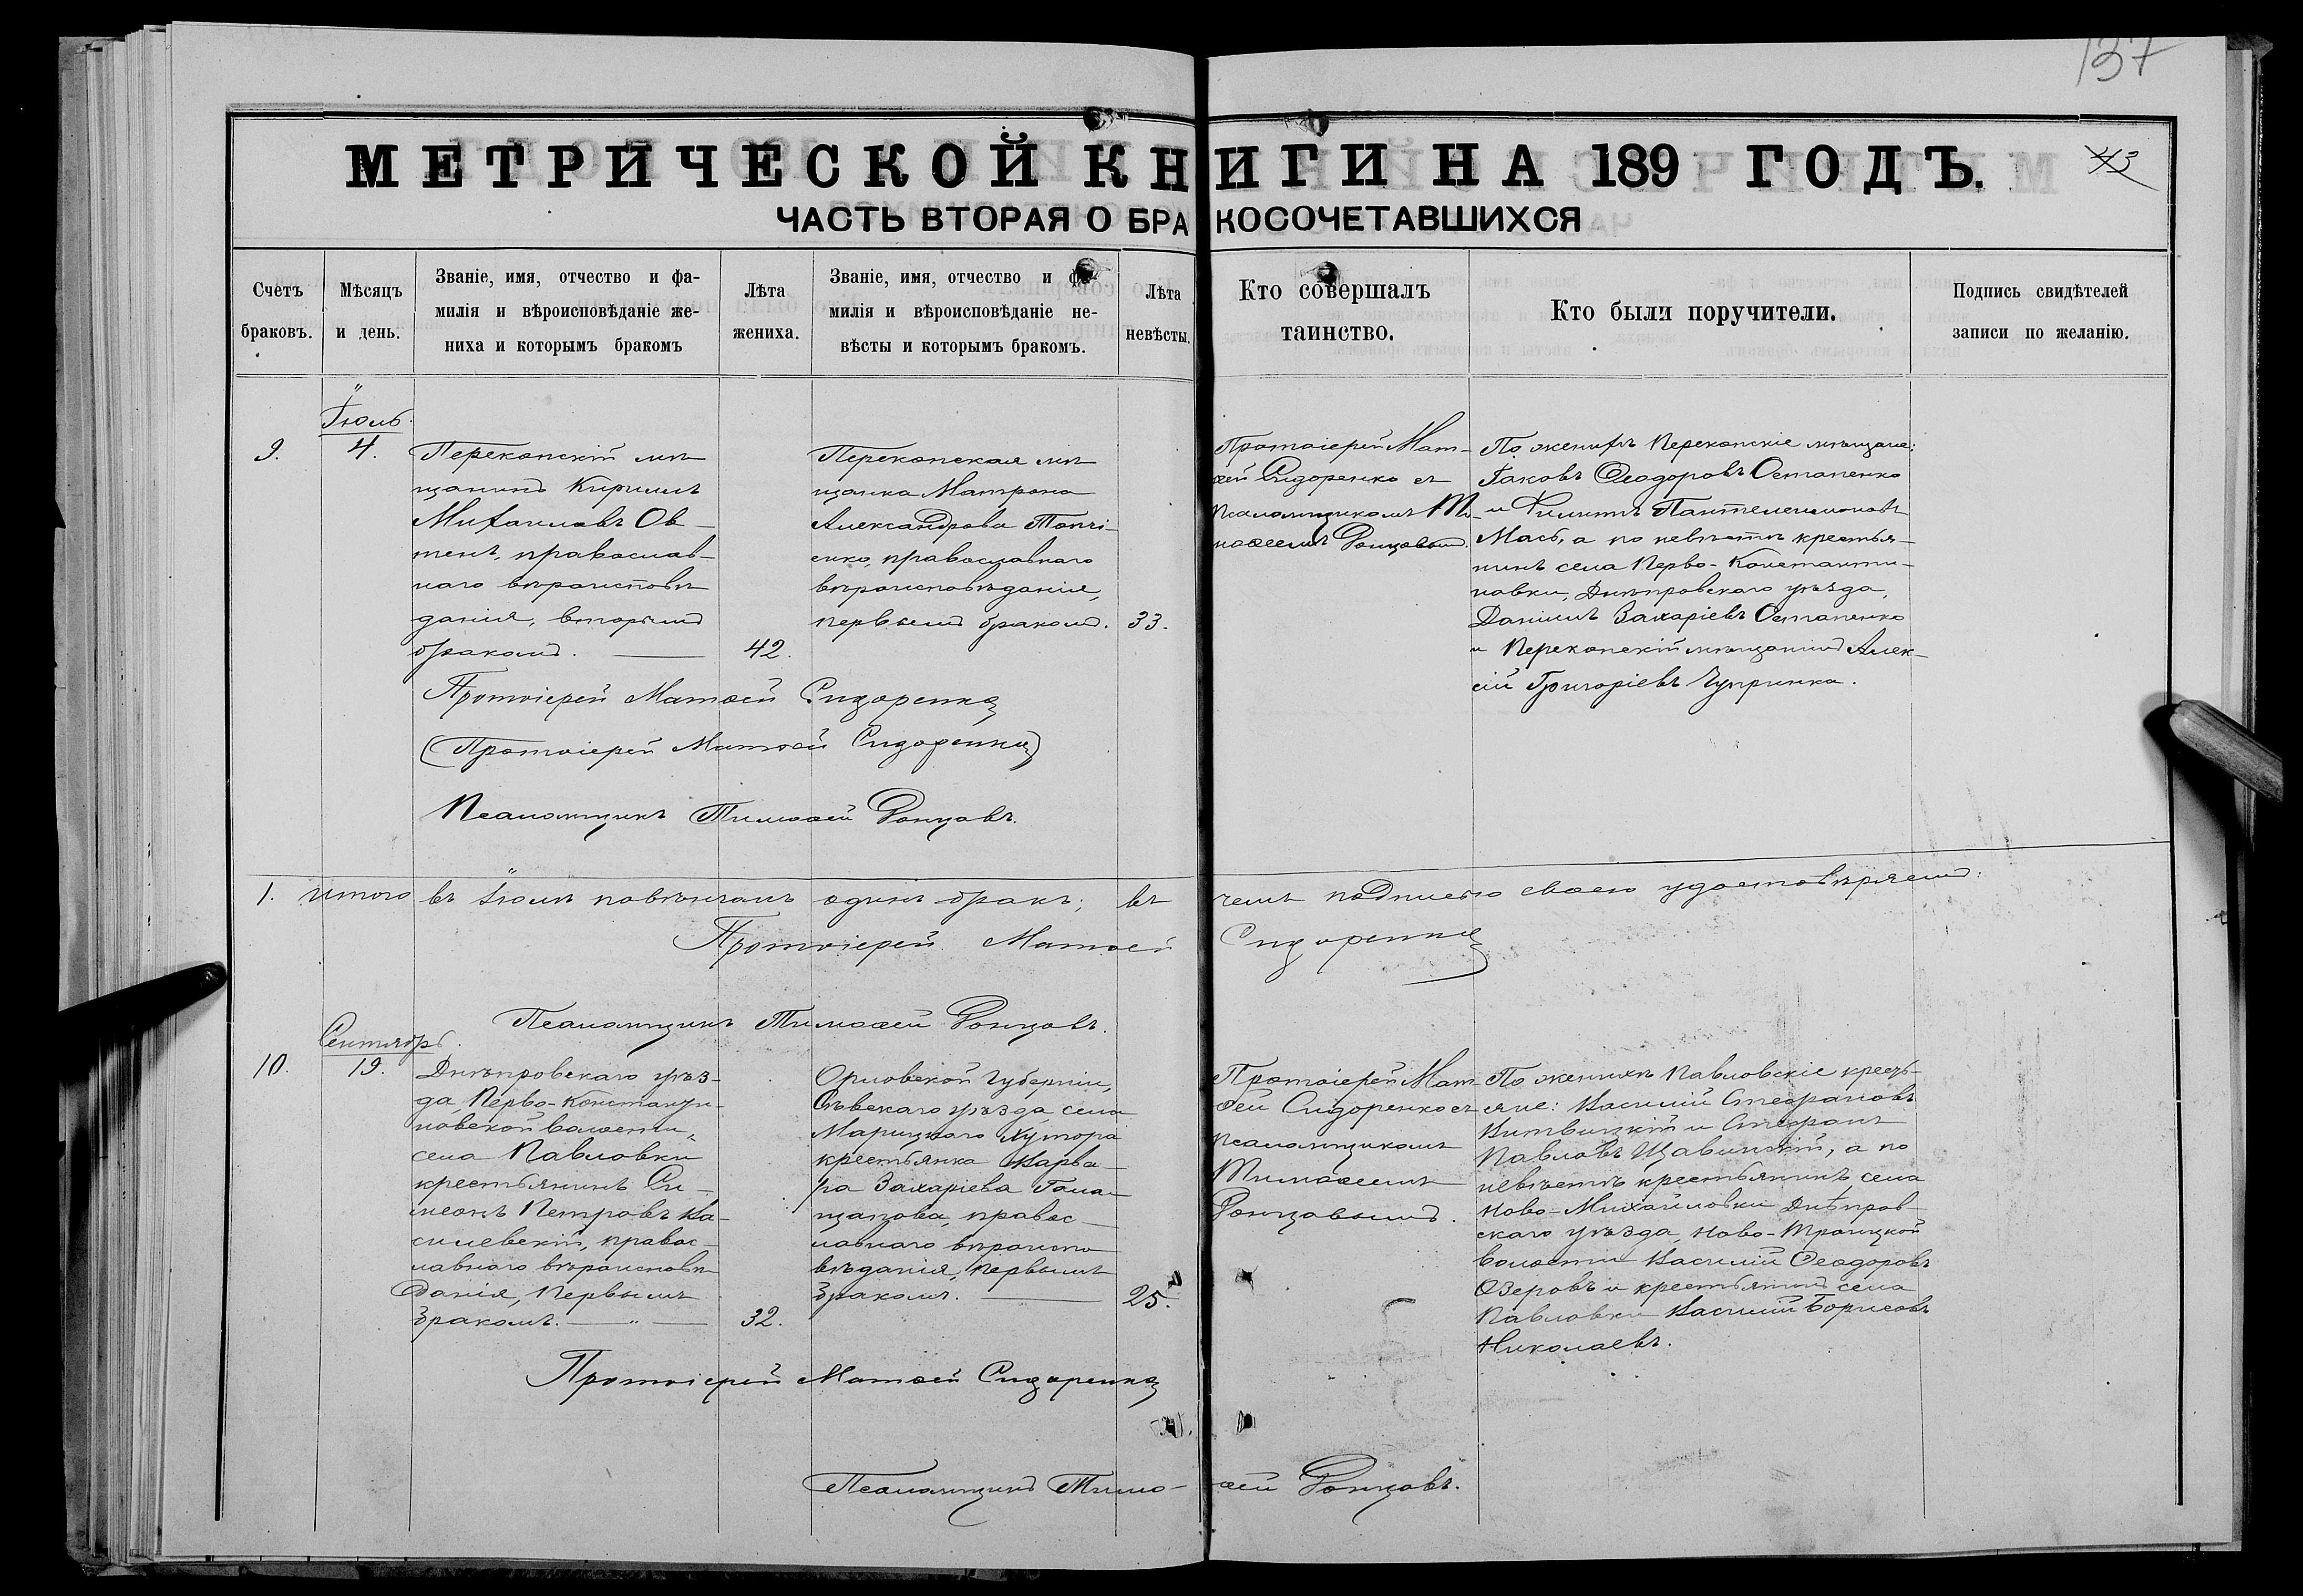 137
МЕТРИЧЕСКОЙ КНИГИ НА 189 ГОДЪ.
43
ЧАСТЬ ВТОРАЯ О БРАКОСОЧЕТАВШИХСЯ
Счетъ
браковъ.
Мѣсяцъ
и день.
Званіе, имя, отчество и фа-
милія и вѣроисповѣданіе же-
ниха и которымъ бракомъ
Лѣта
жениха.
Званіе, имя, отчество и фа-
милія и вѣроисповѣданіе не-
вѣсты и которымъ бракомъ.
Лѣта
невѣсты.
Кто совершалъ
таинство.
Кто были поручители.
Подпись свидѣтелей
записи по желанію.
9.
Іюль.
4.
Перекопскій мѣ
щанинъ Кириллъ
Михаиловъ Ов-
теnъ, православ-
наго вѣроисповѣ
данія, вторымъ
бракомъ.
42.
Перекопская мѣ
щанка Матрона
Александрова Топчі-
енко, православнаго
вѣроисповѣданія,
первымъ бракомъ.
33.
Протоіерей Мат-
ѳей Сидоренко съ
псаломщикомъ Ти-
моѳеемъ Ронцовым.
По женихѣ Перекопскіе мѣщане:
Іаковъ Ѳеодоровъ Остапенко
и Филиппъ Пантелеимоновъ
Мась, а по невѣстѣ крестья-
нинъ села Перво-Константи-
новки, Днѣпровскаго уѣзда,
Даніилъ Захаріевъ Остапенко
и Перекопскій мѣщанинъ Алек-
сій Григоріевъ Чупринка.
Протоіерей Матѳей Сидоренко
(Протоіерей Матѳей Сидоренко)
Псаломщикъ Тимоѳей Ронцовъ.
1. Итого въ Іюлѣ повѣнчанъ одинъ бракъ; въ чемъ подписью своею удостовѣряемъ:
Протоіерей Матѳей Сидоренко
Псаломщикъ Тимоѳей Ронцовъ.
10.
Сентябрь.
19.
Днѣпровскаго уѣз-
да, Перво-Константи-
новской волости,
села Павловки
крестьянинъ Си-
меонъ Петровъ Ва-
силевскій, правос-
лавнаго вѣроисповѣ
данія, первымъ
бракомъ.
32.
Орловской Губерніи,
Сѣвскаго уѣзда, села
Марицкаго Хутора
крестьянка Варва-
ра Захаріева
правос-
лавнаго вѣроиспо
вѣданія, первымъ
бракомъ.
25.
Протоіерей Мат-
ѳей Сидоренко съ
псаломщикомъ
Тимоѳеемъ
Ронцовымъ.
По женихѣ Павловскіе кресть-
яне: Василій Стефановъ
Витвицкій и Стефанъ
Павловъ Щавинскій, а по
невѣстѣ крестьянинъ села
Ново-Михайловки Днѣпров-
скаго уѣзда, Ново-Троицкой
волости Василій Ѳеодоровъ
Озеровъ и крестьянинъ села
Павловки Василій Борисовъ
Николаевъ.
Протоіерей Матѳей Сидоренко
Псаломщикъ Тимоѳей Ронцовъ.